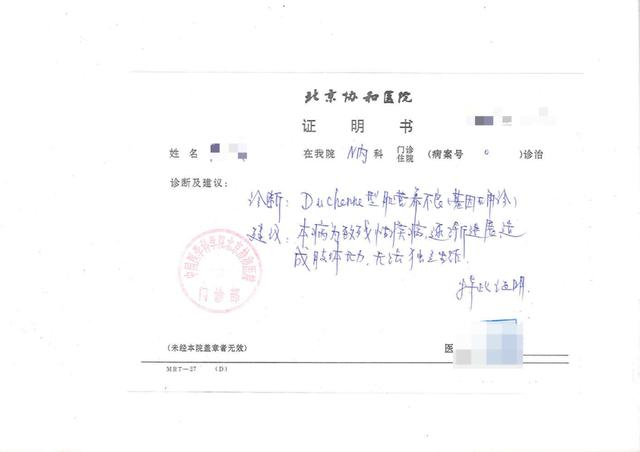 北京协和医院
证明书
姓名 在我院 N内 科 门诊 住院 (病案号 。 )诊治
诊断及建议:
诊断: Duchenne型肌营养不良(基因确诊)
建议: 本病为致残性疾病,逐渐进展,造
成肢体无力,无法独立坐站.
特此证明.
中国医学科学院北京协和医院
门诊
(未经本院盖章者无效)
医
MRT—27 (D)